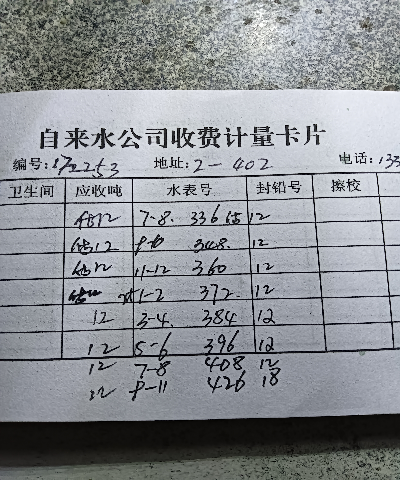 自来水公司收费计量卡片
编号: 172253 地址: 2-402 电话: 133
卫生间 应收吨 水表号 封铅号 擦校
12 7-8. 336 估 12
估12 348. 12
估12 11-12 360 12
1-2 372. 12
12 3-4. 384 12
12 5-6 396 12
12 7-8 408 12
12 9-11 426 18